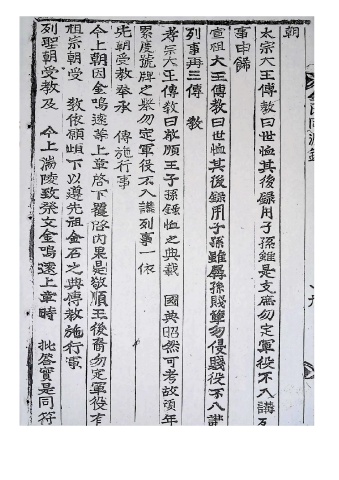 朝
太宗大王傳教曰世恤其後錄用子孫雖是支庶勿定軍役不入講列
事申歸
宣祖大王傳教曰世恤其後錄用子孫雖孱孫賤孽勿侵賤役不入講
列事再三傳 教
孝宗大王傳教曰敬順王子孫錘恤之典載 國典昭然可考故頃年
累度號牌之獘勿定軍役不入講列事一依
先朝受教奉承 傳施行事
今上朝因金鳴遠等上章啓下覆啓內果是敬順王後裔勿定軍役有
祖宗朝受 教依願頉下以遵先祖金石之典傳教施行事
列聖朝受教及 今上 陵致祭文金鳴遠上章時 批答實是同符